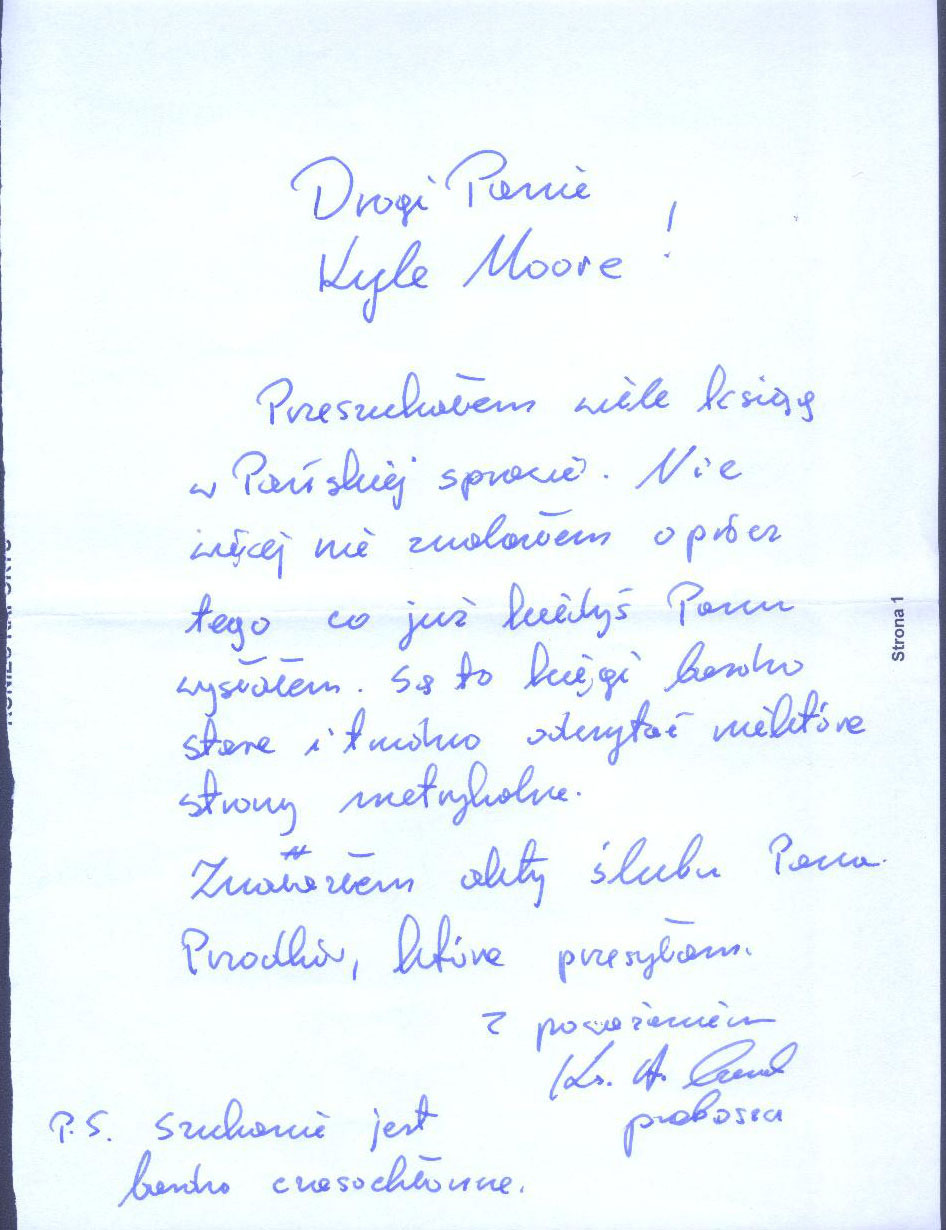 Drogi Panie
Kyle Moore !
Przeszukałem wiele ksiąg
w Pańskiej sprawie. Nic
więcej nie znalazłem oprócz
tego co już kiedyś Panu
wysłałem. Są to księgi bardzo
stare i trudno odczytać niektóre
strony metrykalne.
Znalazłem akty ślubu Pana
Przodków, które przesyłam.
Z poważaniem
Ks. A.
proboszcz
P.S. Szukanie jest
bardzo czasochłonne.
Strona 1